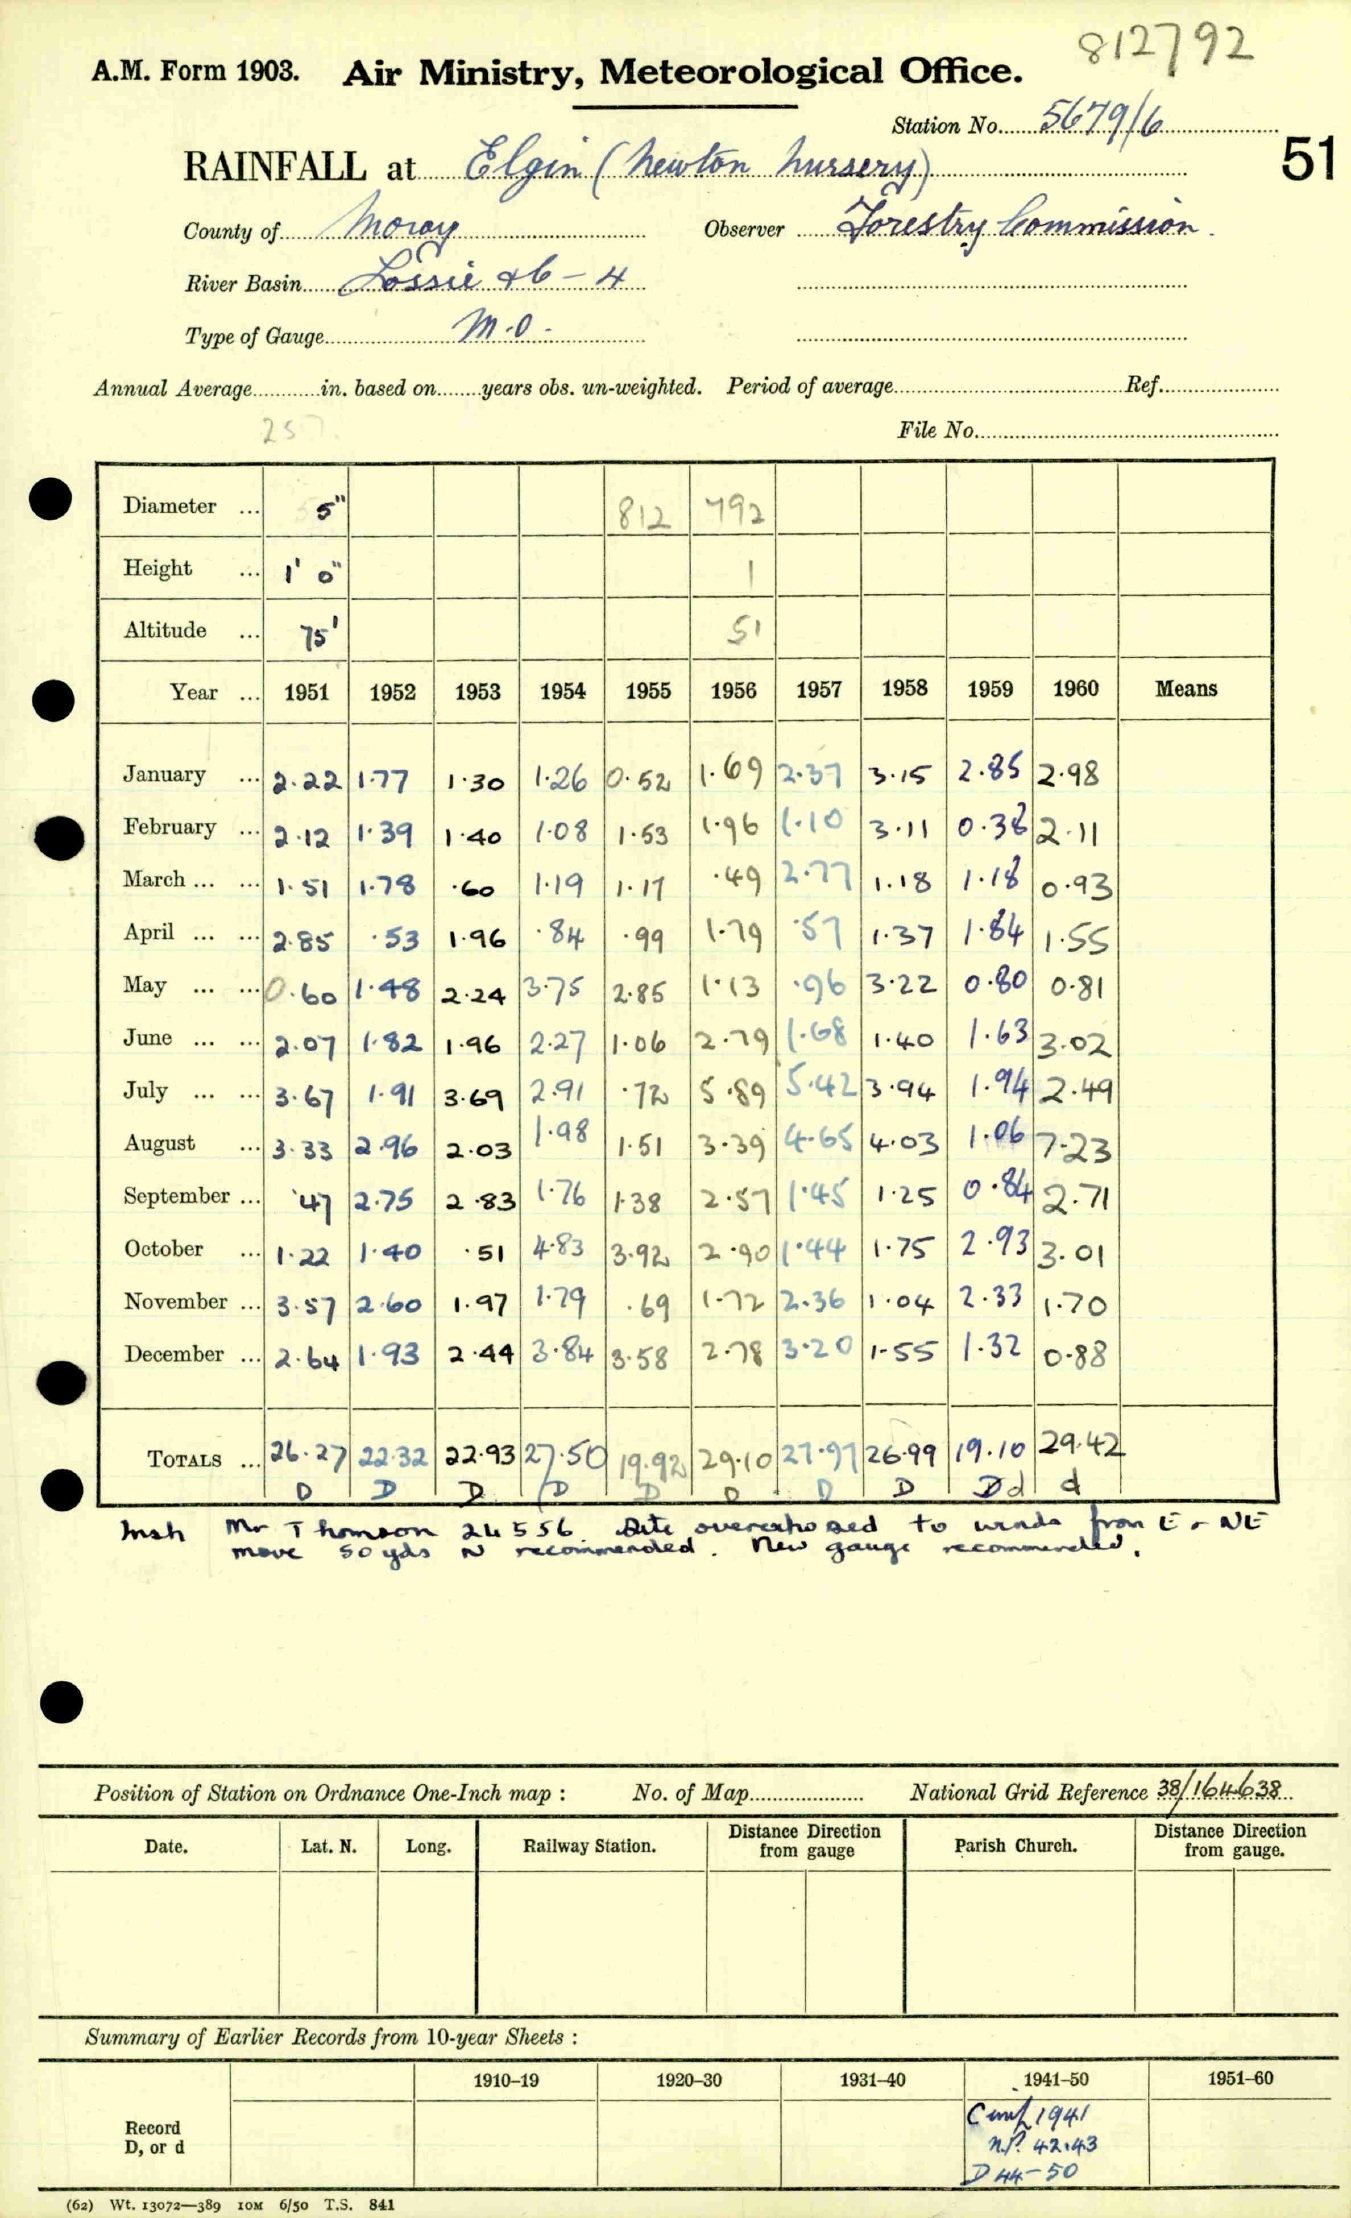 812792
A.M. Form 1903. Air Ministry, Meteorological Office.
Station No. 5679/6
RAINFALL at Elgin (Newton Nursery) 51
County of Moray Observer Forestry Commission.
River Basin Lossie &c - 4
Type of Gauge M.O.
Annual Average in. based on years obs. un-weighted. Period of average Ref.
File No.
Diameter ... 5" 812 792
Height ... 1' 0" 1
Altitude ... 75' 51
Year ... 1951 1952 1953 1954 1955 1956 1957 1958 1959 1960 Means
January ... 2.22 1.77 1.30 1.26 0.52 1.69 2.37 3.15 2.85 2.98
February ... 2.12 1.39 1.40 1.08 1.53 1.96 1.10 3.11 0.38 2.11
March ... ... 1.51 1.78 .60 1.19 1.17 .49 2.77 1.18 1.18 0.93
April ... ... 2.85 .53 1.96 .84 .99 1.79 .57 1.37 1.84 1.55
May ... ... 0.60 1.48 2.24 3.75 2.85 1.13 .96 3.22 0.80 0.81
June ... ... 2.07 1.82 1.96 2.27 1.06 2.79 1.68 1.40 1.63 3.02
July ... ... 3.67 1.91 3.69 2.91 .72 5.89 5.42 3.94 1.94 2.49
August ... 3.33 2.96 2.03 1.98 1.51 3.39 4.65 4.03 1.06 7.23
September ... .47 2.75 2.83 1.76 1.38 2.57 1.45 1.25 0.84 2.71
October ... 1.22 1.40 .51 4.83 3.92 2.90 1.44 1.75 2.93 3.01
November ... 3.57 2.60 1.97 1.79 .69 1.72 2.36 1.04 2.33 1.70
December ... 2.64 1.93 2.44 3.84 3.58 2.78 3.20 1.55 1.32 0.88
TOTALS ... 26.27 22.32 22.93 27.50 19.92 29.10 27.97 26.99 19.10 29.42
D D D D D D D D Dd d
Mr Thomson 24 5 56. Site overexposed to winds from E & NE
move 50 yds N recommended. New gauge recommended.
Position of Station on Ordnance One-Inch map : No. of Map National Grid Reference 38/164638
Date. Lat. N. Long. Railway Station. Distance Direction from gauge Parish Church. Distance Direction from gauge.
Summary of Earlier Records from 10-year Sheets :
1910–19 1920–30 1931–40 1941–50 1951–60
Record
D, or d
1941
42.43
D 44-50
(62) Wt. 13072—389 10M 6/50 T.S. 841